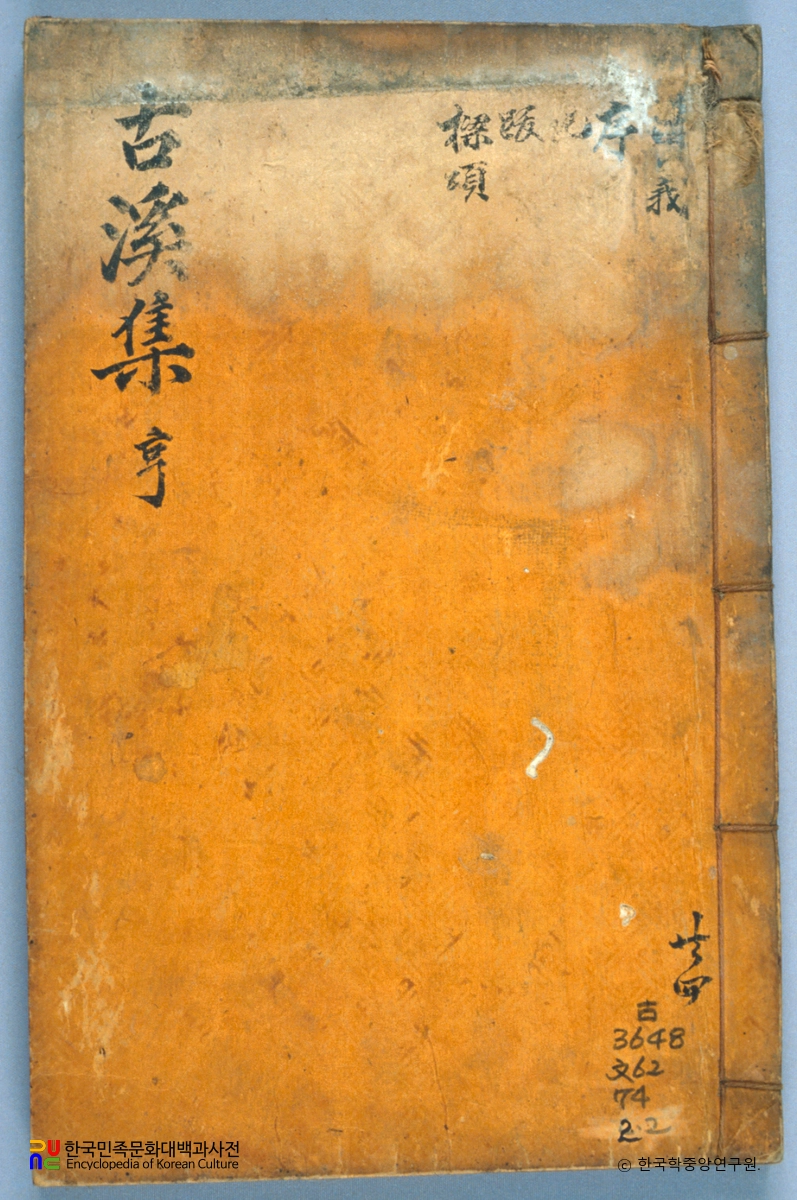 義
序
記
跋
樑頌
古溪集 亨
共四
古
3648
文62
74
2-2
한국민족문화대백과사전
Encyclopedia of Korean Culture
© 한국학중앙연구원.